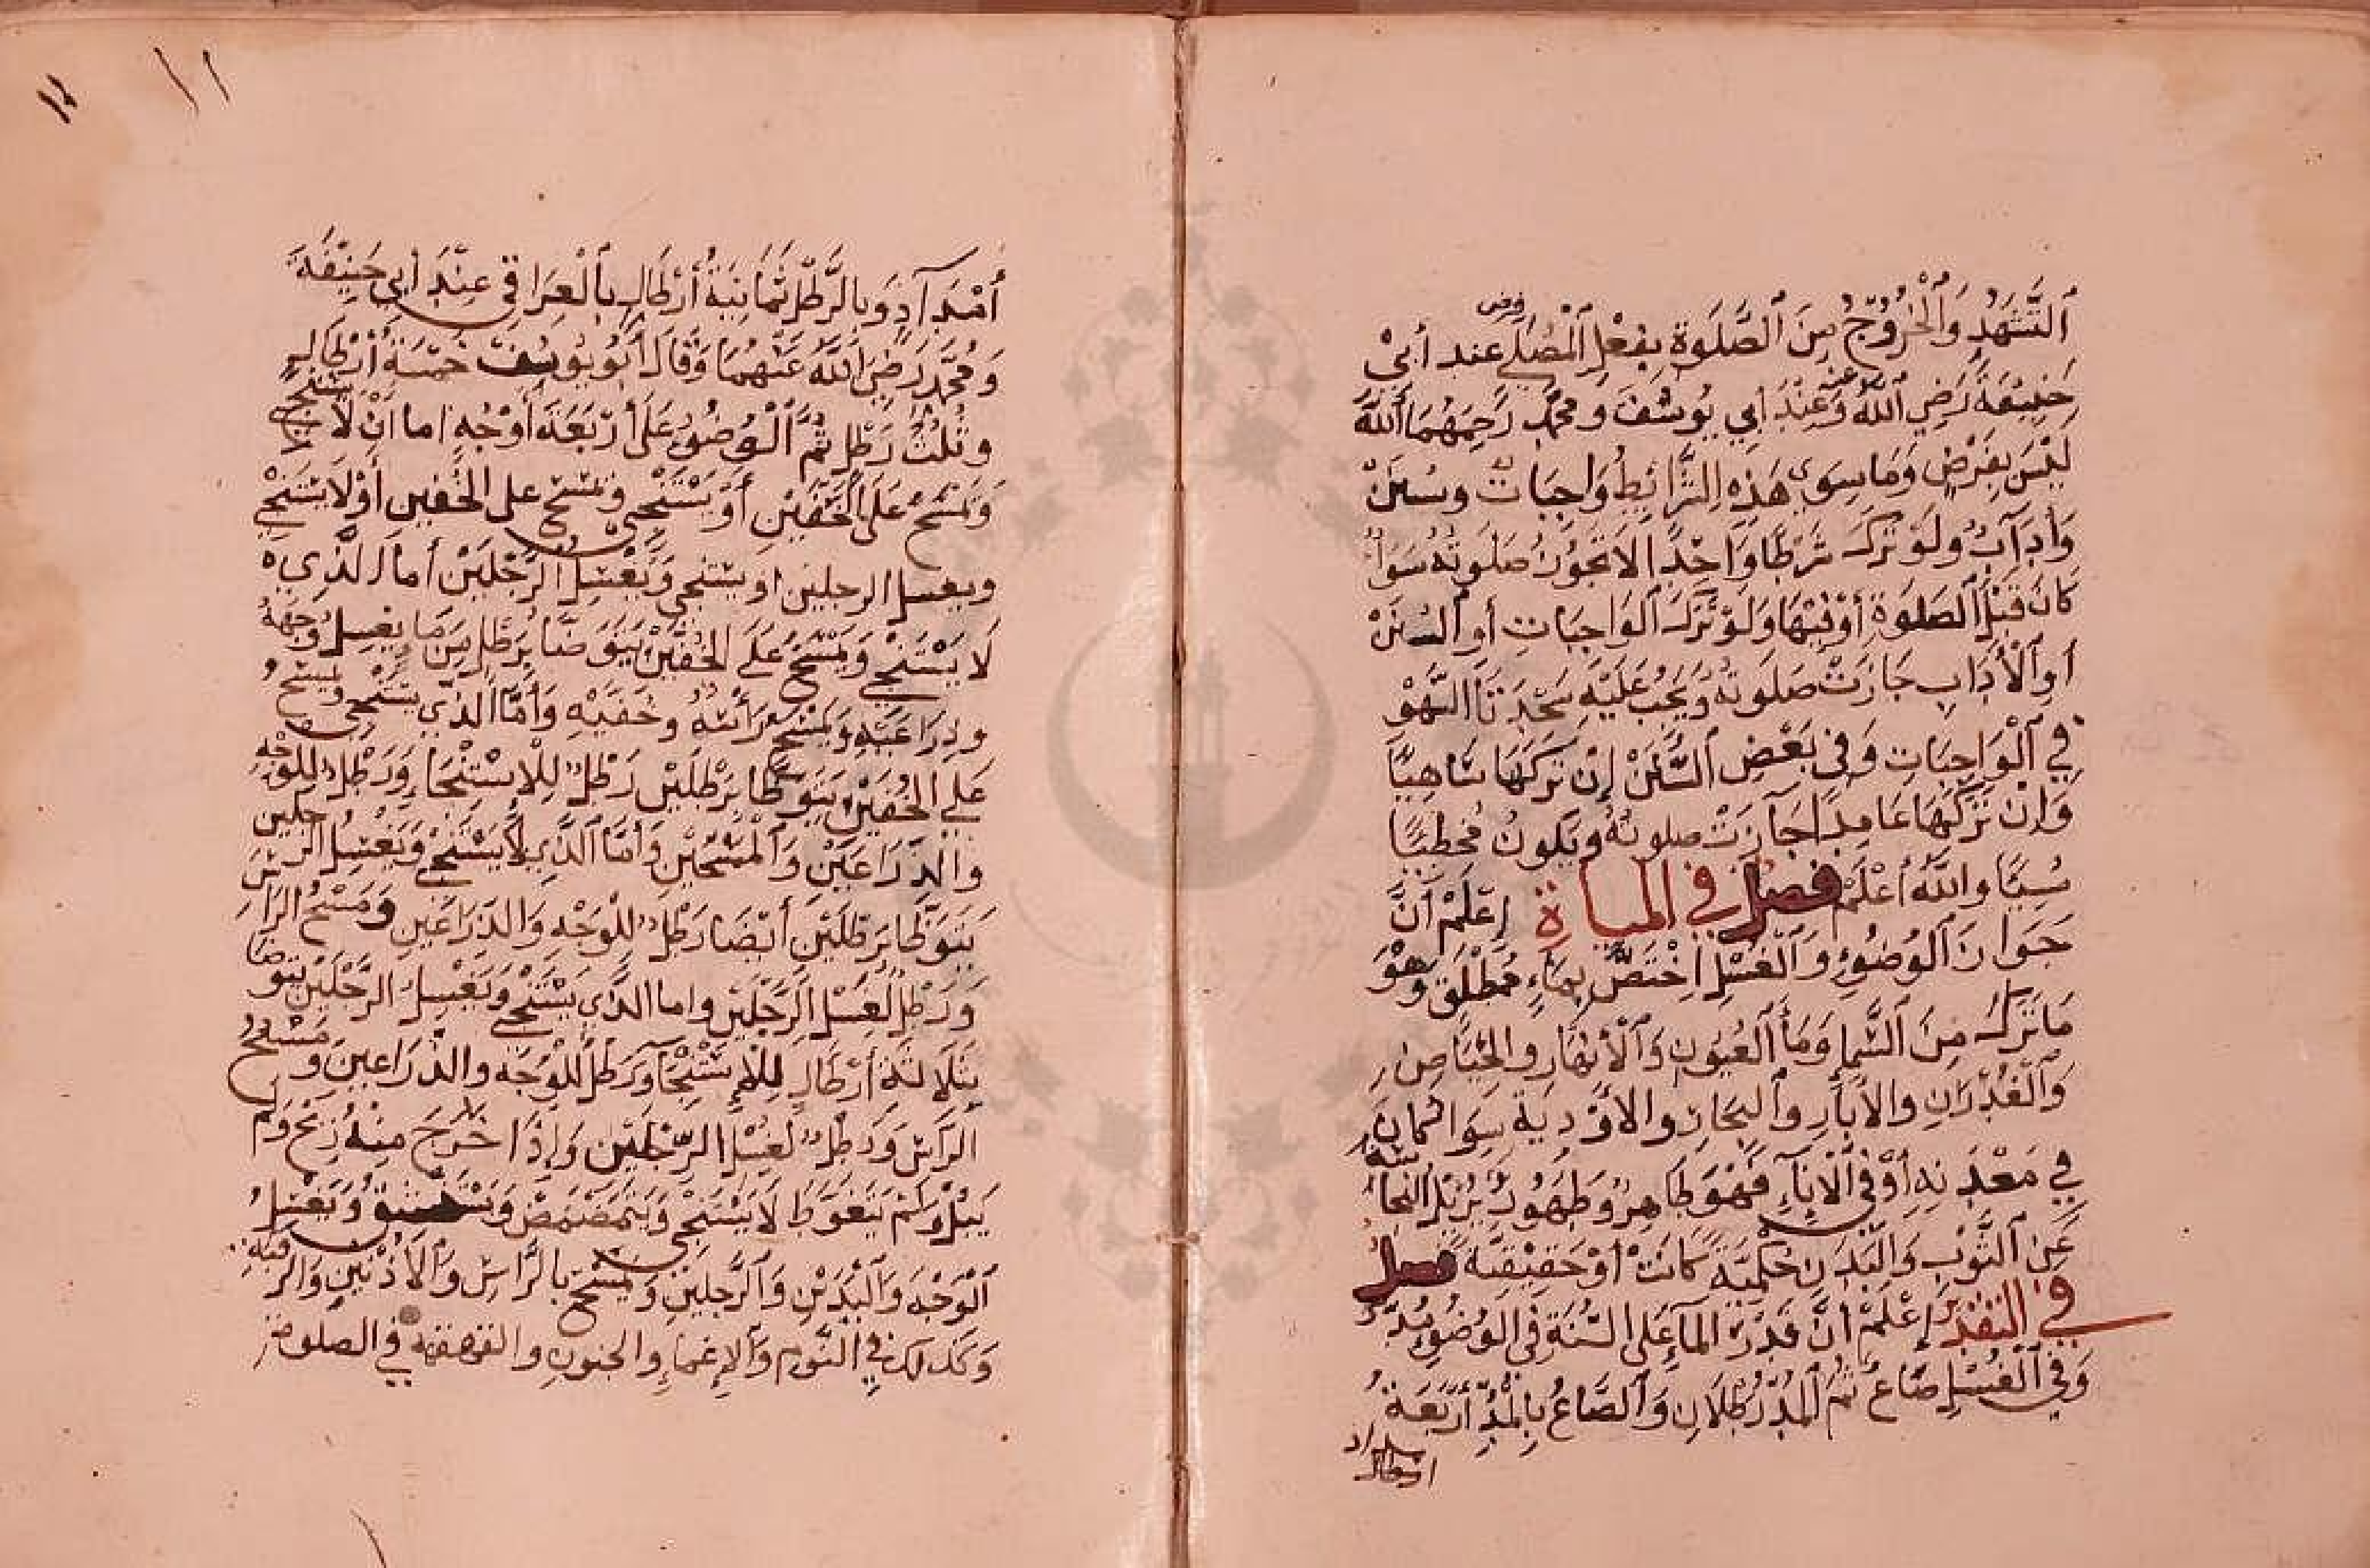 اَلتَّشَهُّدِ وَالْخُرُوْجُ مِنَ الصَّلٰوةِ بِفِعْلِ الْمُصَلِّي فرض عند أَبِيْ
حَنِيْفَةَ رَضِيَ اللّٰهُ عنه وَعِنْدَ أَبِي يُوسُفَ وَمحمَّدٍ رَحِمَهُمَا اللّٰهُ
لَيْسَ بِفَرْضٍ وَمَا سِوَى هَذِهِ الشَّرَائِطِ وَاجِبَاتٌ وَسُنَنٌ
وَأدَآبٌ وَلَوْ تَرَكَ شَرْطًا وَاحِدًا لَا تَجُوْزُ صَلَوتُهُ سَوَاءٌ
كَانَ قَبْلَ الصلوةِ أَوْ فِيْهَا وَلَوْ تَرَكَ الوَاجِبَاتِ أَوِ السُّنَنْ
أَوِ الْأدَابِ جَازَتْ صَلَوتُهُ وَيَجِبُ عَلَيْهِ سَجْدَتَا السَّهْوْ
فِي الْوَاجِبَاتِ وَفِي بَعْضِ السُّنَنْ إِنْ تَرَكَهَا سَاهِيًا
وَإِنْ تَرَكَهَا عَامِدًا جَازَتْ صلوتُهُ وَيَكُونُ مُخْطِيًا
مُسِيًا وَاللّٰهُ أَعْلَمُ فصل في المياة إِعْلَمْ أَنَّ
جَوَازَ الْوُضُوْءِ وَالْغُسْلِ اخْتَصَّ بِمَاءٍ مُطْلَقٍ وَهُوَ
مَا نَزَلَ مِنَ السَّمَاءِ وَمَاءُ الْعُيُونِ وَالْأَنْهَارِ وَالحِيَاضِ
وَالْغُدْرَانِ وَالْأبَارِ وَالْبِحَارِ وَالْأَوْدِيَةِ سِوَاءٌ كَانَ
فِي مَعْدَنِهِ أَوْ فِي الْإِنَاءِ فَهُوَ طَاهِرٌ وَطَهُورٌ يُزِيْلُ النجاسة
عَنِ الثَّوْبِ وَالْبَدَنِ حُكْمِيَّةً كَانَتْ أَوْ حَقِيْقِيَّةً فصل
في التقدير إِعْلَمْ أَنَّ قَدْرَ الْمَآءِ عَلَى السُّنَةِ فِي الوُضُوءِ مُدٌّ
وَفِي الْغُسْلِ صَاعٌ ثُمَّ الْمُدُّ رَطْلَانِ وَالصَّاعُ بِالْمُدِّ أَرْبَعَةُ
امداد
ارطال
١١
أَمْدَآدٍ وَبِالرَّطْلِ ثَمَانِيَةُ أَرْطَالٍ بِالْعِرَاقِي عِنْدَ أَبِي حَنِيْفَةَ
وَمُحَمَّدٍ رَضِيَ اللّٰهُ عَنْهُمَا وَقَالَ أَبُو يُوسُفَ خَمْسَةُ أَرْطَالٍ
وَثُلُثُ رَطْلٍ ثُمَّ الْوُضُوءُ عَلَى أَرْبَعَةِ أَوْجُهٍ إِمَا أَنْ لَا يستنجي
وَيَمْسَحُ عَلَى الْخُفَيْنِ أَوْ يَسْتَنْجِي وَيَمْسَحُ على الخُفين أَوْ لَا يَسْتَنْجِي
ويغسل الرجلين او يستنجي وَيَغْسِلُ الرَّجْلَيْنِ أَمَا الَّذِي
لَا يَسْتَنْجِي وَيَمْسَحُ عَلَى الخُفَّيْنِ يَتَوَضَّأُ بِرَطْلٍ مِنَ مَاءٍ يَغسِلُ وَجْهَهُ
وَذِرَاعَيْهِ وَيَمْسَحُ رَأْسَهُ وَخُفَيْهِ وَأَمَّا الَّذِي يَسْتَنْجِي وَيَمْسَحُ
عَلَى الْخُفَيْنِ يَتَوَضَّأُ بِرَطْلَيْنِ رَطْلٌ لِلْاِسْتِنْجَاءِ وَرَطْلٌ لِلْوَجْهِ
وَالذِّرَاعَيْنِ وَالْمَسْحَيْنِ وَأَمَّا الَّذِي لَا يَسْتَنْجِي وَيَغْسِلُ الرجلين
يَتَوَضَّأُ بِرَطْلَيْنِ أَيْضًا رَطْلٌ لِلْوَجْهِ وَالذِرَاعَيْنِ وَمَسْحُ الرَّأسِ
وَرَطْلٌ لِغَسْلِ الرِّجْلَيْنِ وَاما الَّذِي يَسْتَنْجِي وَيَغْسِلُ الرِّجْلَيْنِ يَتَوضأ
بِثَلَاثَةِ أَرْطَالٍ لِلْاِسْتِنْجَاءِ وَرَطْلٌ لِلْوَجْهِ وَالذِّرَاعَيْنِ وَمَسْحُ
الرَّأْسِ وَرَطْلٌ لِغَسْلِ الرِّجْلَيْنِ وَإِذَا خَرَجَ مِنْهُ رِيْحٌ وَلَمْ
يَبُلْ وَلَمْ يَتَغَوَّطْ لَا يَسْتَنْجِي وَيَتَمَضْمَضُ وَيَسْتَنْشِقُ وَيَغْسِلُ
الْوَجْهَ وَالْيَدَيْنِ وَالرِّجْلَيْنِ وَيَمْسَحُ بِالرَّأسِ وَالْأُذُنَيْنِ وَالرَّقَبَةِ
وَكَذَلِكَ فِي النَّومِ وَالإِغْمَاءِ وَالجُنُونِ وَالقهقهة فِي الصلوة